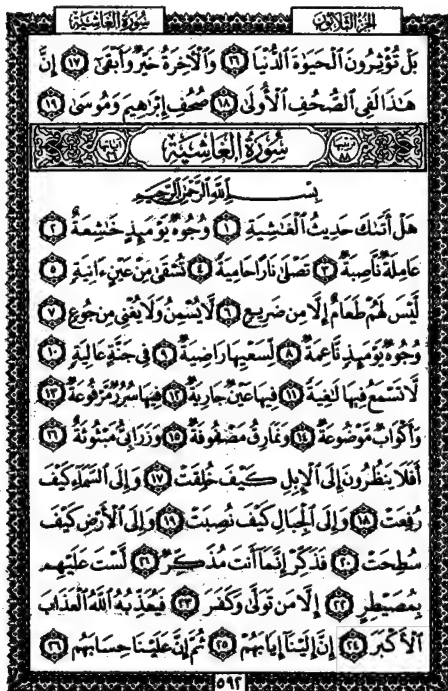 سُورَةُ الْغَاشِيَةِ الجُزْءُ الثَّلَاثُونَ
بَلْ تُؤْثِرُونَ الْحَيَوٰةَ الدُّنْيَا ﴿١٦﴾ وَالْآخِرَةُ خَيْرٌ وَأَبْقَىٰ ﴿١٧﴾ إِنَّ
هَـٰذَا لَفِى الصُّحُفِ الْأُولَىٰ ﴿١٨﴾ صُحُفِ إِبْرَٰهِيمَ وَمُوسَىٰ ﴿١٩﴾
ترتيبها ٨٨ سُورَةُ الْغَاشِيَةِ آياتها ٢٦
بِسْمِ اللَّهِ الرَّحْمَـٰنِ الرَّحِيمِ
هَلْ أَتَىٰكَ حَدِيثُ الْغَـٰشِيَةِ ﴿١﴾ وُجُوهٌ يَوْمَئِذٍ خَـٰشِعَةٌ ﴿٢﴾
عَامِلَةٌ نَّاصِبَةٌ ﴿٣﴾ تَصْلَىٰ نَارًا حَامِيَةً ﴿٤﴾ تُسْقَىٰ مِنْ عَيْنٍ ءَانِيَةٍ ﴿٥﴾
لَّيْسَ لَهُمْ طَعَامٌ إِلَّا مِن ضَرِيعٍ ﴿٦﴾ لَّا يُسْمِنُ وَلَا يُغْنِى مِن جُوعٍ ﴿٧﴾
وُجُوهٌ يَوْمَئِذٍ نَّاعِمَةٌ ﴿٨﴾ لِّسَعْيِهَا رَاضِيَةٌ ﴿٩﴾ فِى جَنَّةٍ عَالِيَةٍ ﴿١٠﴾
لَّا تَسْمَعُ فِيهَا لَـٰغِيَةً ﴿١١﴾ فِيهَا عَيْنٌ جَارِيَةٌ ﴿١٢﴾ فِيهَا سُرُرٌ مَّرْفُوعَةٌ ﴿١٣﴾
وَأَكْوَابٌ مَّوْضُوعَةٌ ﴿١٤﴾ وَنَمَارِقُ مَصْفُوفَةٌ ﴿١٥﴾ وَزَرَابِىُّ مَبْثُوثَةٌ ﴿١٦﴾
أَفَلَا يَنظُرُونَ إِلَى الْإِبِلِ كَيْفَ خُلِقَتْ ﴿١٧﴾ وَإِلَى السَّمَآءِ كَيْفَ
رُفِعَتْ ﴿١٨﴾ وَإِلَى الْجِبَالِ كَيْفَ نُصِبَتْ ﴿١٩﴾ وَإِلَى الْأَرْضِ كَيْفَ
سُطِحَتْ ﴿٢٠﴾ فَذَكِّرْ إِنَّمَآ أَنتَ مُذَكِّرٌ ﴿٢١﴾ لَّسْتَ عَلَيْهِم
بِمُصَيْطِرٍ ﴿٢٢﴾ إِلَّا مَن تَوَلَّىٰ وَكَفَرَ ﴿٢٣﴾ فَيُعَذِّبُهُ اللَّهُ الْعَذَابَ
الْأَكْبَرَ ﴿٢٤﴾ إِنَّ إِلَيْنَآ إِيَابَهُمْ ﴿٢٥﴾ ثُمَّ إِنَّ عَلَيْنَا حِسَابَهُم ﴿٢٦﴾
٥٩٢